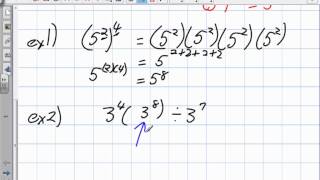 ex1) (5²)⁴ = (5²)(5²)(5²)(5²)
= 5²⁺²⁺²⁺²
5⁽²⁾⁽⁴⁾ = 5⁸
ex2) 3⁴(3⁸) ÷ 3⁷